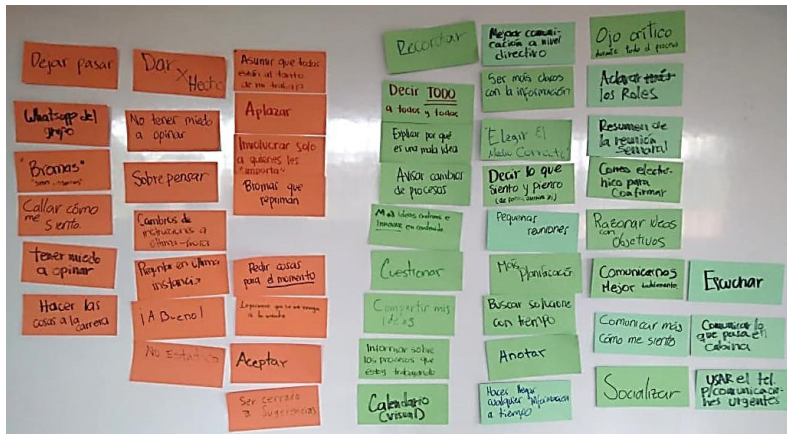 Dejar pasar
Whatsapp del
grupo
"Bromas"
Callar cómo
me siento.
tener miedo
a opinar
Hacer las
cosas a la carrera
Dar x
Hecho
No tener miedo
a opinar
Sobre pensar
Cambios de
instrucciones a
última
Preguntar en última
instancia
¡A Bueno!
No
Asumir que todos
están al tanto
de mi trabajo
Aplazar
Involucrar solo
a quienes les
"importa"
Bromas que
repriman
Pedir cosas
para el momento
Aceptar
Ser cerrado
a sugerencias
Recordar
Decir TODO
a todos y todas
Explicar por qué
es una mala idea
Avisar cambios
de procesos
Más ideas
innovar en contenido
Cuestionar
Compartir mis
ideas
Informar sobre
los procesos que
estoy trabajando
Calendario
(visual)
Mejorar comuni-
cación a nivel
directivo
Ser más claros
con la información
"Elegir El
Medio Correcto"
Decir lo que
siento y pienso
Pequeñas
reuniones
Más
planificación
Buscar solucione
con tiempo
Anotar
Hacer llegar
cualquier información
a tiempo
Ojo crítico
durante todo el proceso
Aclarar
los Roles
Resumen de
la reunión
semanal
Correo electró-
nico para
confirmar
Razonar ideas
con objetivos
Comunicarnos
Mejor
Comunicar más
cómo me siento
Socializar
Escuchar
Comunicar lo
que pasa en
cabina
USAR el tel.
p/comunicacio-
nes urgentes